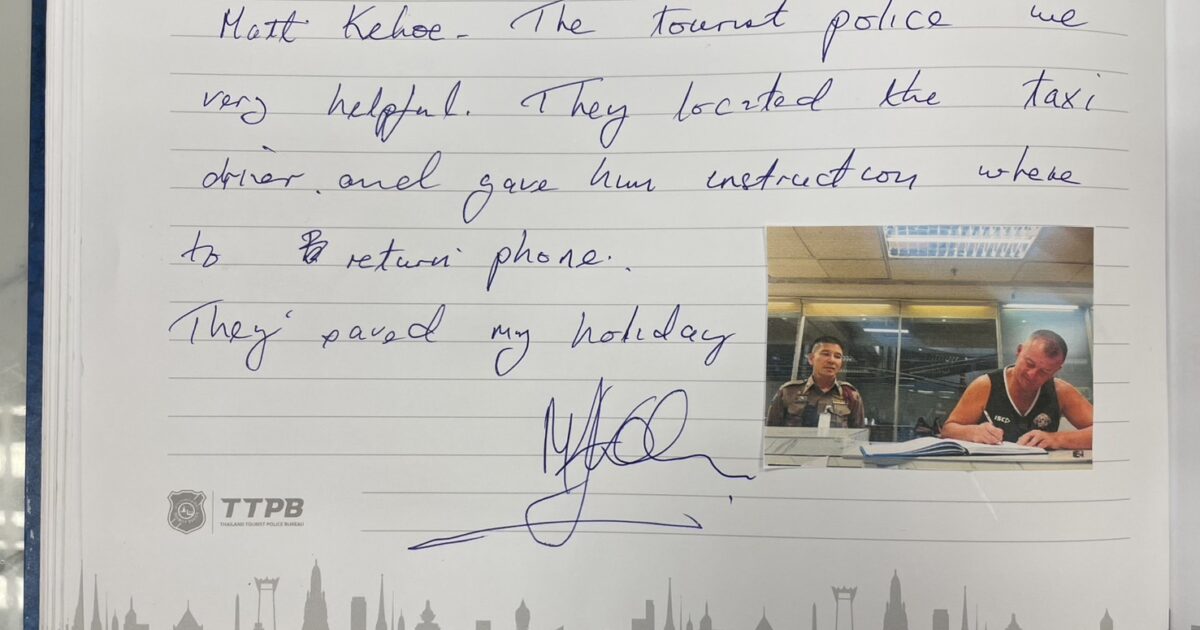 Matt Kehoe - The tourist police we
very helpful. They located the taxi
driver and gave him instruction where
to return phone.
They saved my holiday
ISC
TTPB
THAILAND TOURIST POLICE BUREAU